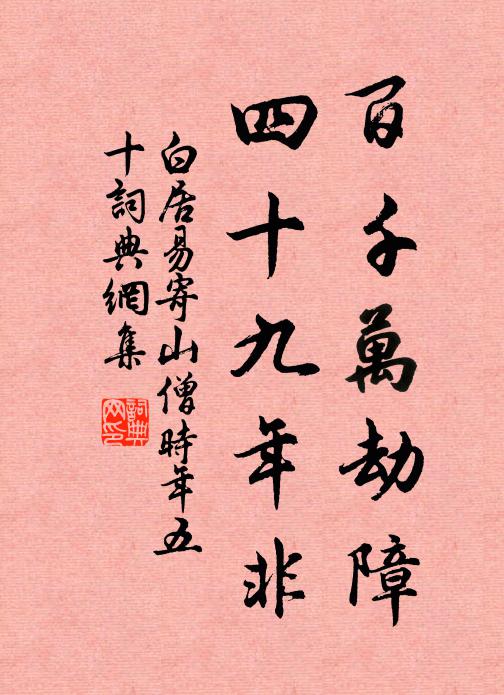 百千萬劫障
四十九年非
白居易寄山僧時年五
十詞典網集
詞典
网印